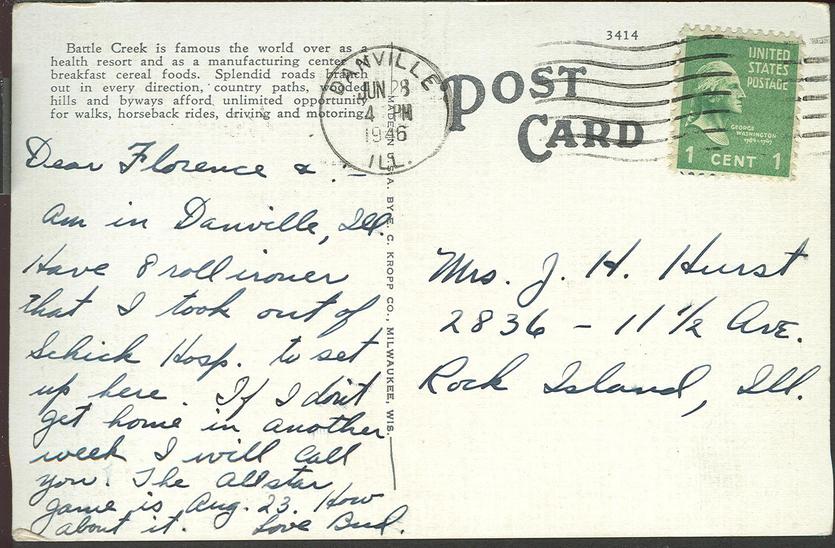 Battle Creek is famous the world over as a
health resort and as a manufacturing center
breakfast cereal foods. Splendid roads branch
out in every direction, country paths, wooded
hills and byways afford unlimited opportunity
for walks, horseback rides, driving and motoring.
3414
POST
CARD
DANVILLE
JUN 28
4 PM
1946
ILL.
UNITED
STATES
POSTAGE
GEORGE
WASHINGTON
1789-1797
1 CENT 1
MADE IN U.S.A. BY E. C. KROPP CO., MILWAUKEE, WIS.
Dear Florence & . –
Am in Danville, Ill.
Have 8 roll ironer
that I took out of
Schick Hosp. to set
up here. If I don't
get home in another
week I will call
you. The Allstar
game is Aug. 23. How
about it. Love Bud.
Mrs. J. H. Hurst
2836 – 11 1/2 Ave.
Rock Island, Ill.